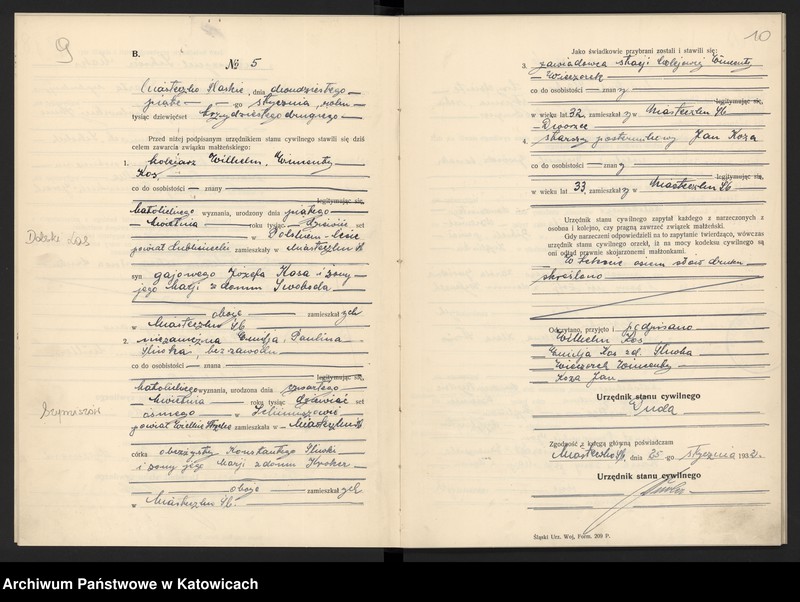 9
B.
№ 5
Miasteczko Śląskie, dnia dwudziestego
piąte — go stycznia roku
tysiąc dziewięćset trzydziestego drugiego
Przed niżej podpisanym urzędnikiem stanu cywilnego stawili się dziś
celem zawarcia związku małżeńskiego:
1. kolejarz Wilhelm, Wincenty
Kos
co do osobistości — znany
legitymując się,
katolickiego wyznania, urodzony dnia piątego
kwietnia roku tysiąc dziewięć set
w
powiat lubliniecki zamieszkały w Miasteczku Śl
syn gajowego Józefa Kosa i żony
jego Marji z domu Swoboda
oboje zamieszkał ych
w Miasteczku Śl.
2. niezamężna Emilja Paulina
bez zawodu
co do osobistości — znana
legitymując się,
katolickiego wyznania, urodzona dnia czwartego
kwietnia roku tysiąc dziewięć set
ósmego w
powiat Wielkie Strzelce zamieszkała w Miasteczku Śl
córka Konstantego
i żony jego Marji z domu
oboje zamieszkał ych
w Miasteczku Śl.
10
Jako świadkowie przybrani zostali i stawili się:
3. zawiadowca stacji kolejowej Wincenty
Wieczorek
co do osobistości — znan y
legitymując się,
w wieku lat 32, zamieszkał y w Miasteczku Śl
Dworzec
4. starszy posterunkowy Jan Koza
co do osobistości — znan y
legitymując się,
w wieku lat 33, zamieszkał y w Miasteczku Śl
Urzędnik stanu cywilnego zapytał każdego z narzeczonych z
osobna i kolejno, czy pragną zawrzeć związek małżeński.
Gdy narzeczeni odpowiedzieli na to zapytanie twierdząco, wówczas
urzędnik stanu cywilnego orzekł, iż na mocy kodeksu cywilnego są
oni odtąd prawnie skojarzonemi małżonkami.
W tekście osiem słów druku
skreślono
Odczytano, przyjęto i podpisano
Wilhelm Kos
Emilja Kos zd.
Wieczorek Wincenty
Koza Jan
Urzędnik stanu cywilnego
Duda
Zgodność z księgą główną poświadczam
Miasteczko Śl., dnia 25 go stycznia 1932 r.
Urzędnik stanu cywilnego
Śląski Urz. Woj. Form. 209 P.
Archiwum Państwowe w Katowicach